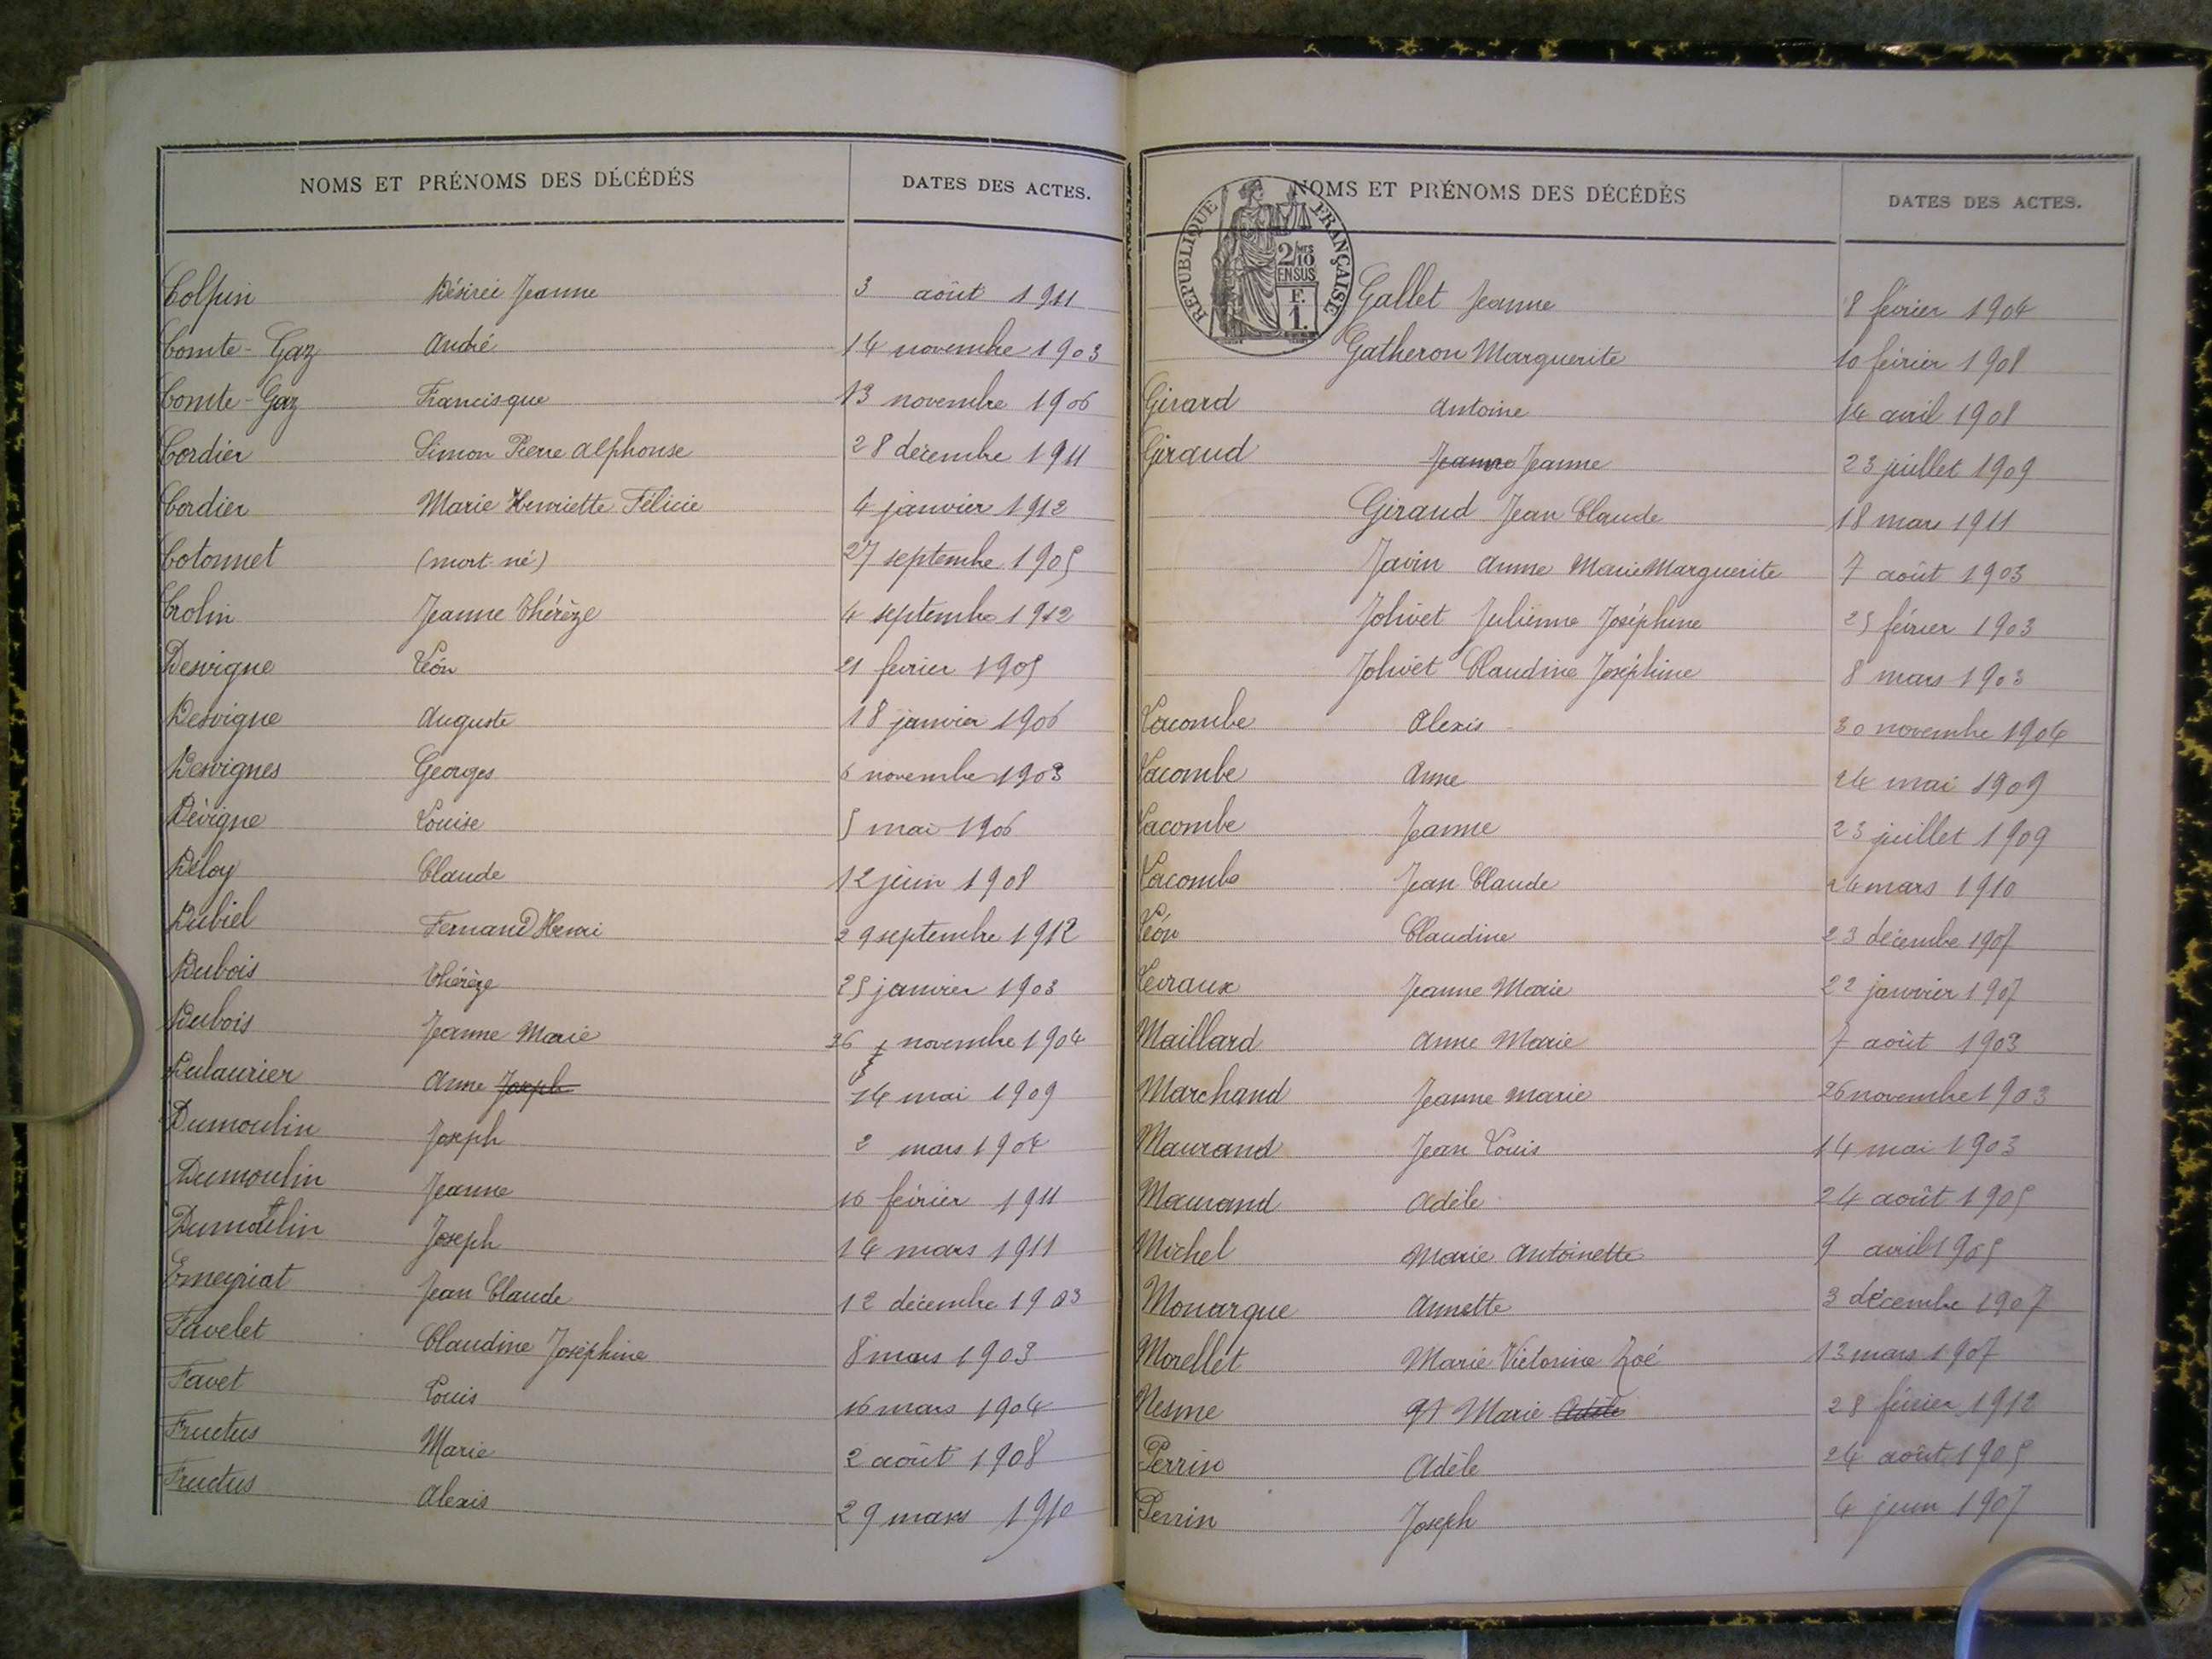 NOMS ET PRÉNOMS DES DÉCÉDÉS DATES DES ACTES.
Colpin Désirée Jeanne 3 août 1911
Comte-Gaz André 14 novembre 1903
Comte-Gaz Francisque 13 novembre 1906
Cordier Simon Pierre Alphonse 28 décembre 1911
Cordier Marie Henriette Félicie 4 janvier 1912
Cotonnet (mort-né) 27 septembre 1905
Crolin Jeanne Thérèze 4 septembre 1912
Desvigne Léon 21 février 1905
Desvigne Auguste 18 janvier 1906
Desvignes Georges 6 novembre 1903
Dévigne Louise 5 mai 1906
Déloy Claude 12 juin 1908
Dubiel Fernand Henri 29 septembre 1912
Dubois Thérèze 25 janvier 1903
Dubois Jeanne Marie 26 novembre 1904
Dulaurier Anne Joseph 14 mai 1909
Dumoulin Joseph 2 mars 1904
Dumoulin Jeanne 16 février 1911
Dumoulin Joseph 14 mars 1911
Emeyriat Jean Claude 12 décembre 1903
Favelet Claudine Joséphine 8 mars 1903
Favet Louis 16 mars 1904
Fructus Marie 2 août 1908
Fructus Alexis 29 mars 1910
NOMS ET PRÉNOMS DES DÉCÉDÉS DATES DES ACTES.
RÉPUBLIQUE FRANÇAISE
2/10 MES
EN SUS
F.
1.
Gallet Jeanne 8 février 1904
Gatheron Marguerite 10 février 1908
Girard Antoine 14 avril 1908
Giraud Jeanne Jeanne 23 juillet 1909
Giraud Jean Claude 18 mars 1911
Javin Anne Marie Marguerite 7 août 1903
Jolivet Julienne Joséphine 25 février 1903
Jolivet Claudine Joséphine 8 mars 1903
Lacombe Alexis 30 novembre 1904
Lacombe Anne 24 mai 1909
Lacombe Jeanne 23 juillet 1909
Lacombe Jean Claude 24 mars 1910
Léon Claudine 23 décembre 1907
Levraux Jeanne Marie 22 janvier 1907
Maillard Anne Marie 7 août 1903
Marchand Jeanne Marie 26 novembre 1903
Maurand Jean Louis 14 mai 1903
Maurand Adèle 24 août 1905
Michel Marie Antoinette 9 avril 1905
Monarque Annette 3 décembre 1907
Morellet Marie Victorine Zoé 13 mars 1907
Nesme Marie Adèle 28 février 1912
Perrin Adèle 24 août 1905
Perrin Joseph 4 juin 1907